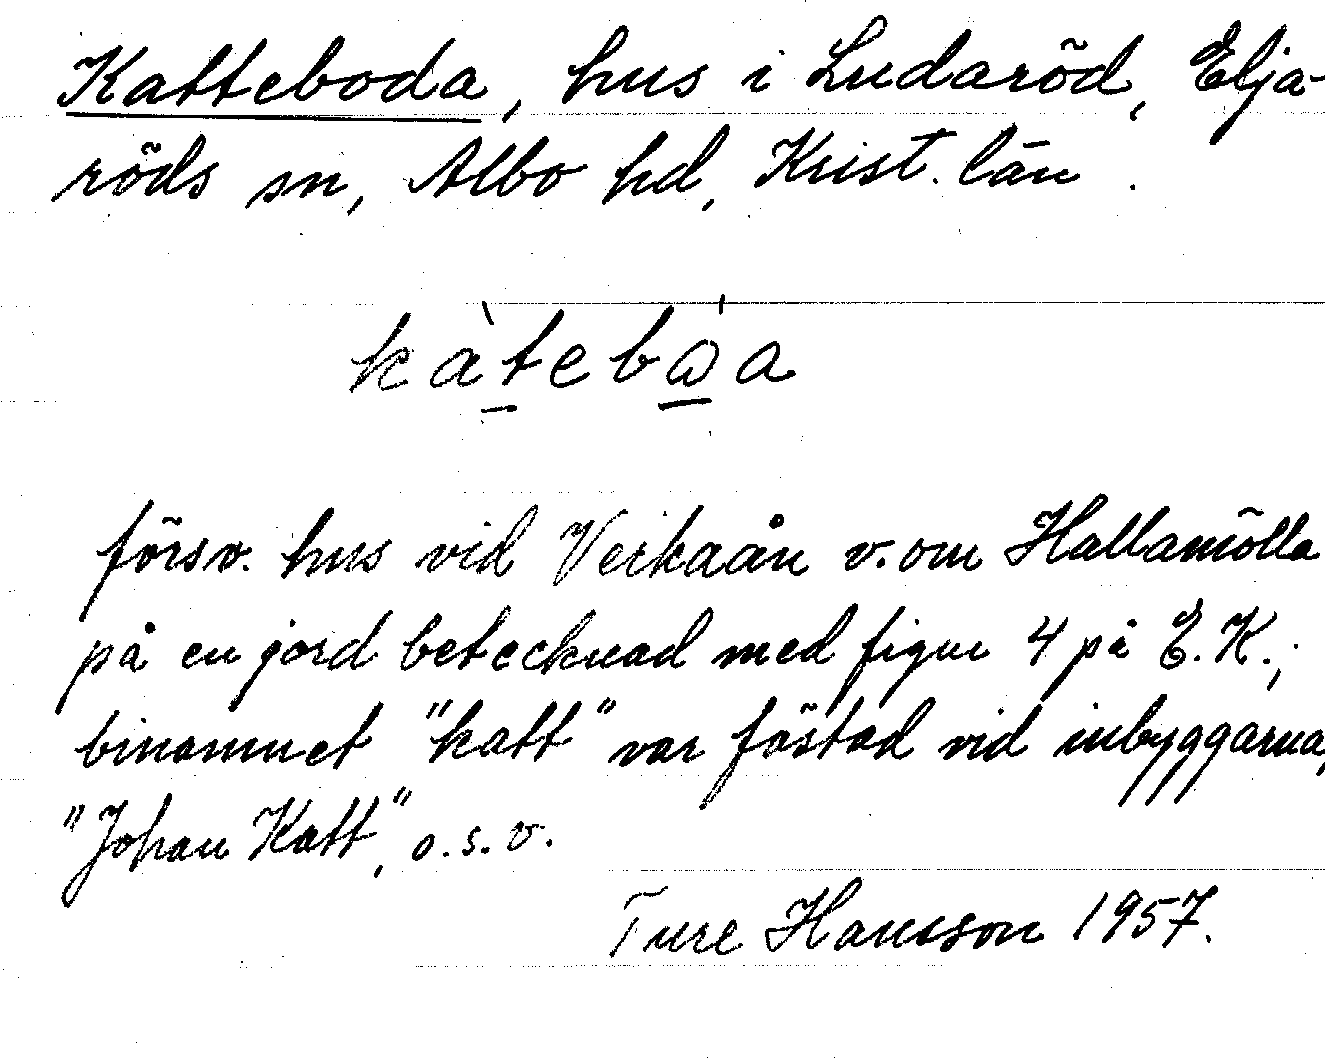 Katteboda, hus i Ludaröd, Elja-
röds sn, Albo hd, Krist. län.
kàtebω̲a
försv. hus vid Verkaån v. om Hallamölla
på en jord betecknad med figur 4 på E.K.;
binamnet "katt" var fästad vid inbyggarna,
"Johan Katt", o.s.v.
Ture Hansson 1957.